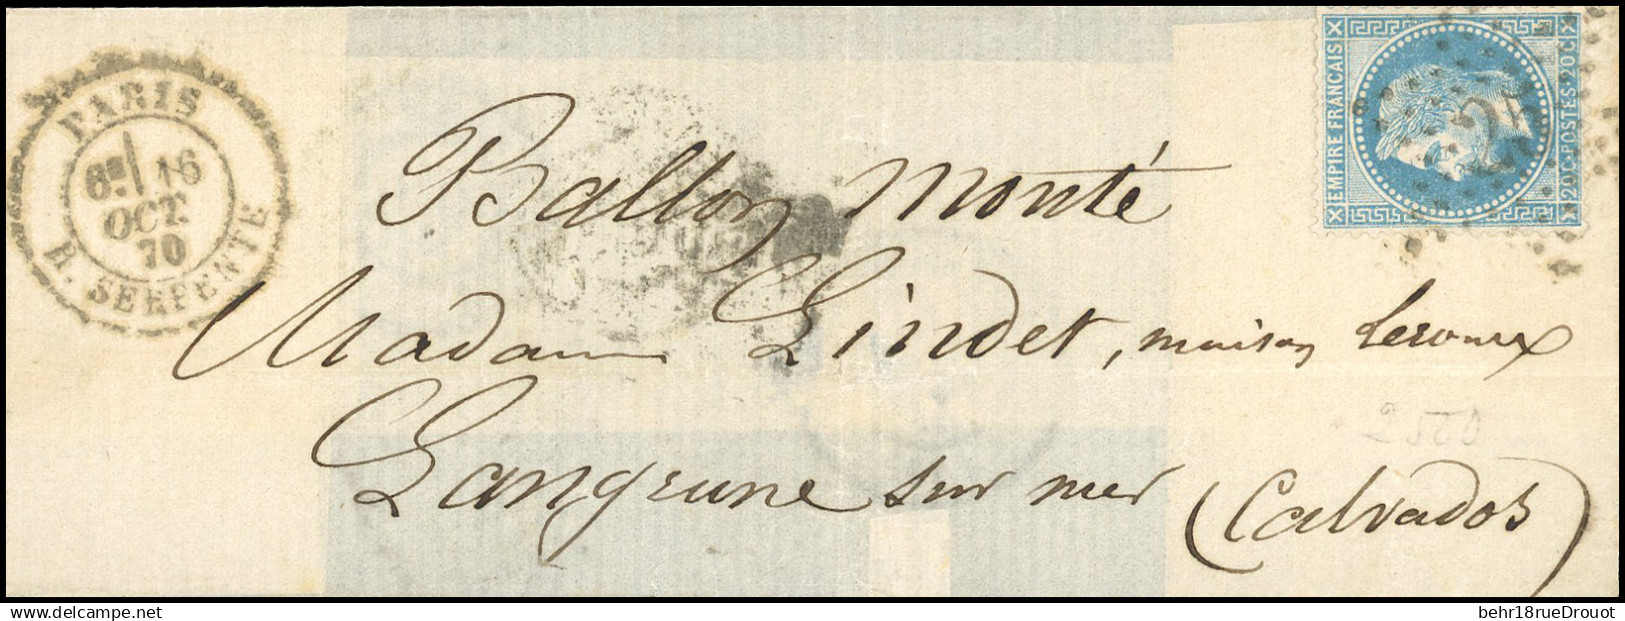 PARIS
6E 16
OCT.
70
R. SERPENTE
EMPIRE FRANCAIS
20C-POSTES-20C
25
Ballon monté
Madame Lindet, maison Leroux
Langrune sur mer (Calvados)
2500
behr18rueDrouot